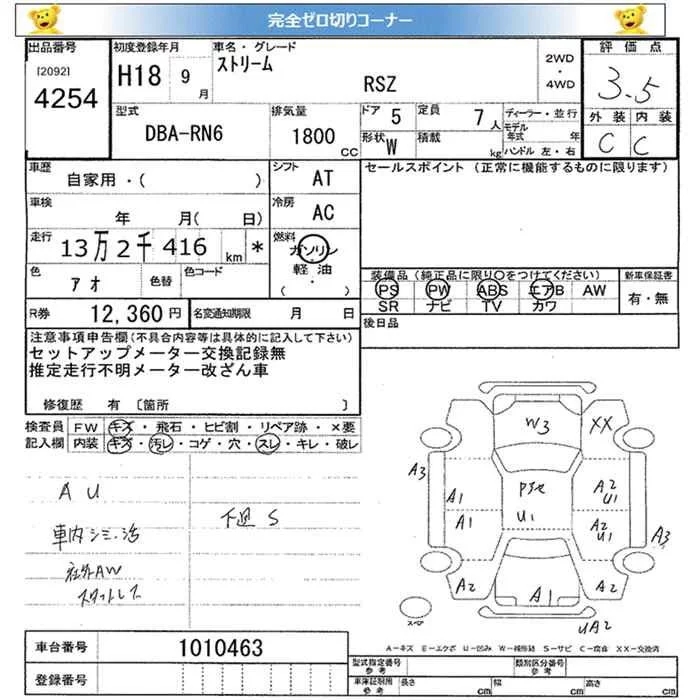 完全ゼロ切りコーナー
出品番号 初度登録年月 車名・グレード 2WD・4WD 評価点
[2092] 4254 H18 9月 ストリーム RSZ 3.5
型式 排気量 ドア 5 定員 7人 ディーラー・並行 外装 内装
DBA-RN6 1800CC 形状 W 積載 kg モデル年式 年 C C
ハンドル 左・右
車歴 シフト セールスポイント (正常に機能するものに限ります)
自家用・( ) AT
車検 冷房
年 月( 日) AC
走行 13万2千416km * 燃料 ガソリン・軽油・( )
色 アオ 色替 色コード 装備品 (純正品に限り○をつけてください) 新車保証書
PS PW ABS エアB AW 有・無
SR ナビ TV カワ
R券 12,360円 名変通知期限 月 日
後日品
注意事項申告欄(不具合内容等は具体的に記入して下さい)
セットアップメーター交換記録無
推定走行不明メーター改ざん車
修復歴 有 〔箇所 〕
検査員 FW キズ・飛石・ヒビ割・リペア跡・×要
記入欄 内装 キズ・汚レ・コゲ・穴・スレ・キレ・破レ
A U
下廻 S
車内シミ・汚
社外AW
スタットレス
W3 XX
A3 A1 A2 U1
U1
A1 A2 U1 A3
A2 A1 A2
UA2
A－キズ E－エクボ U－凹み W－補修跡 S－サビ C－腐食 XX－交換済
車台番号 1010463
登録番号
型式指定番号 参考 類別区分番号 参考
車庫証明用 参考 長さ cm 幅 cm 高さ cm